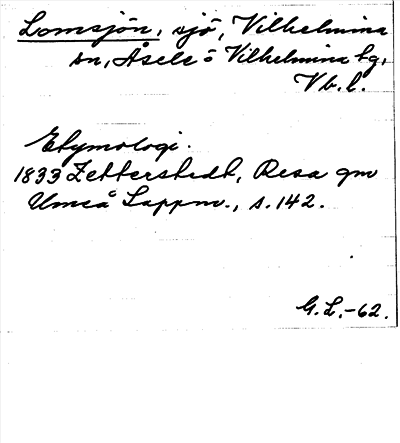 Lomsjön, sjö, Vilhelmina
sn, Åsele o Vilhelmina tg,
Vb. l.
Etymologi.
1833 Zetterstedt, Resa gm
Umeå Lappm., s. 142.
G.L.-62.